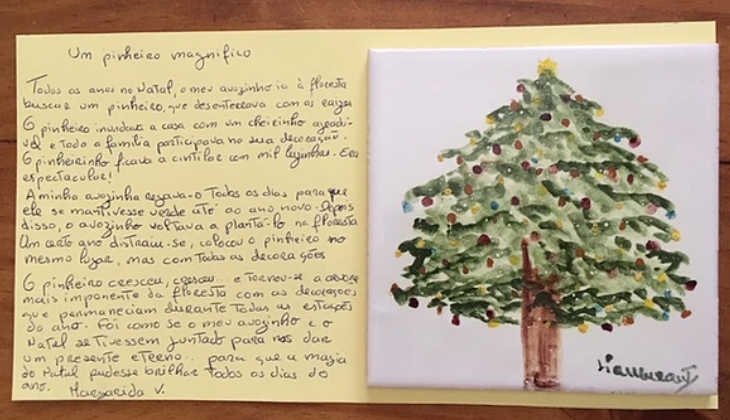 Um pinheiro magnífico
Todos os anos no Natal, o meu avozinho ia à floresta
buscar um pinheiro, que desenterrava com as raízes
O pinheiro inundava a casa com um cheirinho agradá-
vel e toda a família participava na sua decoração.
O pinheirinho ficava a cintilar com mil luzinhas. Era
espectacular!
A minha avozinha regava-o todos os dias para que
ele se mantivesse verde até ao ano novo. Depois
disso, o avozinho voltava a plantá-lo na floresta
Um certo ano distraiu-se, colocou o pinheiro no
mesmo lugar, mas com todas as decorações
O pinheiro cresceu, cresceu... e tornou-se a árvore
mais imponente da floresta com as decorações
que permaneciam durante todas as estações
do ano. Foi como se o meu avozinho e o
Natal se tivessem juntado para nos dar
um presente eterno... para que a magia
do Natal pudesse brilhar todos os dias do
ano. Margarida V.